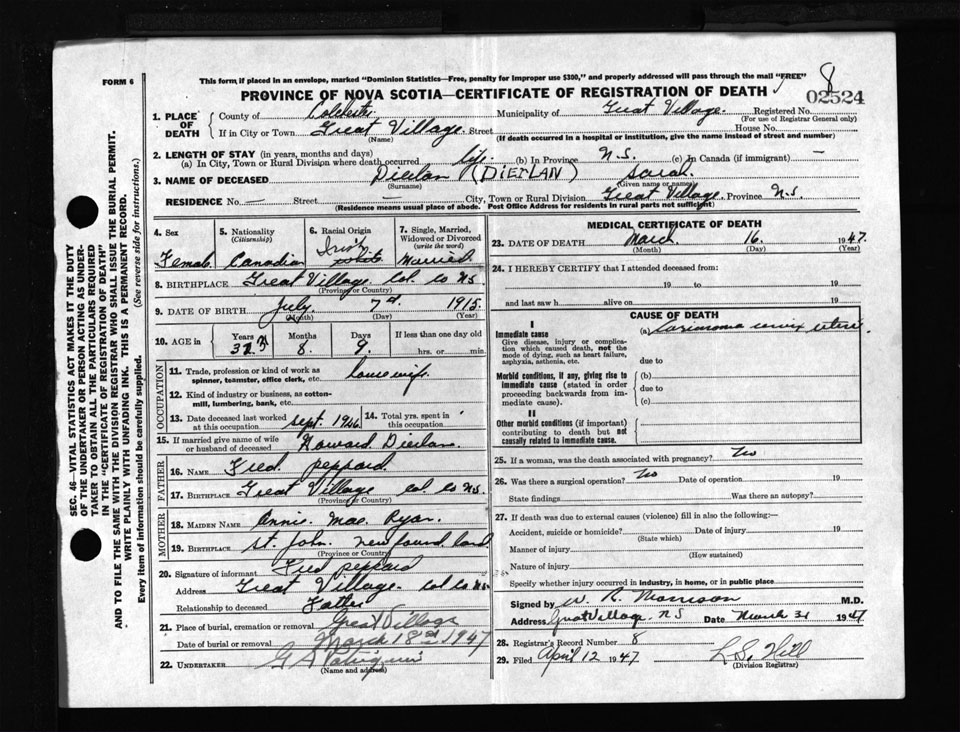 This form, if placed in an envelope, marked "Dominion Statistics—Free, penalty for improper use $300," and properly addressed will pass through the mail "FREE"
FORM 6
8
PROVINCE OF NOVA SCOTIA—CERTIFICATE OF REGISTRATION OF DEATH
02524
SEC. 46—VITAL STATISTICS ACT MAKES IT THE DUTY
OF THE UNDERTAKER OR PERSON ACTING AS UNDER-
TAKER TO OBTAIN ALL THE PARTICULARS REQUIRED
IN THE "CERTIFICATE OF REGISTRATION OF DEATH"
AND TO FILE THE SAME WITH THE DIVISION REGISTRAR WHO SHALL ISSUE THE BURIAL PERMIT.
WRITE PLAINLY WITH UNFADING INK. THIS IS A PERMANENT RECORD.
Every item of information should be carefully supplied. (See reverse side for instructions.)
1. PLACE OF DEATH
County of Colchester Municipality of Great Village Registered No.
(For use of Registrar General only)
If in City or Town Great Village Street House No.
(Name) (If death occurred in a hospital or institution, give the name instead of street and number)
2. LENGTH OF STAY (in years, months and days)
(a) In City, Town or Rural Division where death occurred life (b) In Province N.S. (c) In Canada (if immigrant) —
3. NAME OF DECEASED Dierlan (DIERLAN) Sarah
(Surname) (Given name or names)
RESIDENCE No. — Street — City, Town or Rural Division Great Village, Province N.S.
(Residence means usual place of abode. Post Office Address for residents in rural parts not sufficient)
4. Sex Female
5. Nationality (Citizenship) Canadian
6. Racial Origin Irish
7. Single, Married, Widowed or Divorced (write the word) Married
8. BIRTHPLACE Great Village Col. Co N.S.
(Province or Country)
9. DATE OF BIRTH July 7th 1915
(Month) (Day) (Year)
10. AGE in Years 31 Months 8 Days 9 If less than one day hrs. or min.
OCCUPATION
11. Trade, profession or kind of work as spinner, teamster, office clerk, etc. housewife
12. Kind of industry or business, as cotton-mill, lumbering, bank, etc.
13. Date deceased last worked at this occupation Sept. 1946 14. Total yrs. spent in this occupation
15. If married give name of wife or husband of deceased Howard Dierlan
FATHER
16. NAME Fred Peppard
17. BIRTHPLACE Great Village Col. Co N.S.
(Province or Country)
MOTHER
18. MAIDEN NAME Annie Mae Ryan
19. BIRTHPLACE St. John Newfoundland
(Province or Country)
20. Signature of informant Fred Peppard
Address Great Village Col Co N.S.
Relationship to deceased Father
21. Place of burial, cremation or removal Great Village
Date of burial or removal March 18 1947
22. UNDERTAKER
(Name and address)
MEDICAL CERTIFICATE OF DEATH
23. DATE OF DEATH March 16 1947
(Month) (Day) (Year)
24. I HEREBY CERTIFY that I attended deceased from:
19 to 19
and last saw h alive on 19
CAUSE OF DEATH
I
Immediate cause
Give disease, injury or complication which caused death, not the mode of dying, such as heart failure, asphyxia, asthenia, etc.
(a) Carcinoma cervix uteri
due to
Morbid conditions, if any, giving rise to immediate cause (stated in order proceeding backwards from immediate cause).
(b)
due to
(c)
II
Other morbid conditions (if important) contributing to death but not causally related to immediate cause.
25. If a woman, was the death associated with pregnancy? No
26. Was there a surgical operation? No Date of operation 19
State findings Was there an autopsy?
27. If death was due to external causes (violence) fill in also the following:—
Accident, suicide or homicide? Date of injury 19
(State which)
Manner of injury
(How sustained)
Nature of injury
Specify whether injury occurred in industry, in home, or in public place
Signed by W. R. Morrison M.D.
Address Great Village, N.S Date March 31 1947
28. Registrar's Record Number 8
29. Filed April 12 1947 L.S. Hill
(Division Registrar)